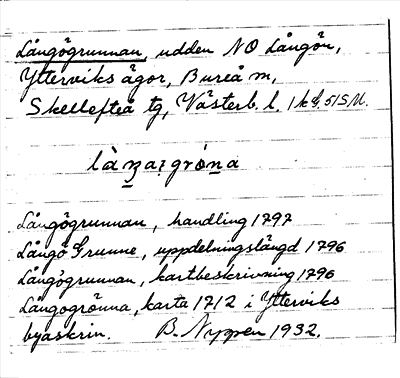 Långögrunnan, udden NO Långön,
Ytterviks ägor, Bureå m,
Skellefteå tg, Västerb. l.
Långögrunnan, handling 1797
Långö Grunne, uppdelningslängd 1796
Långögrunnan, kartbeskrivning 1796
Långogrönna, karta 1712 i Ytterviks
byaskrin. B. Nyppen 1932.